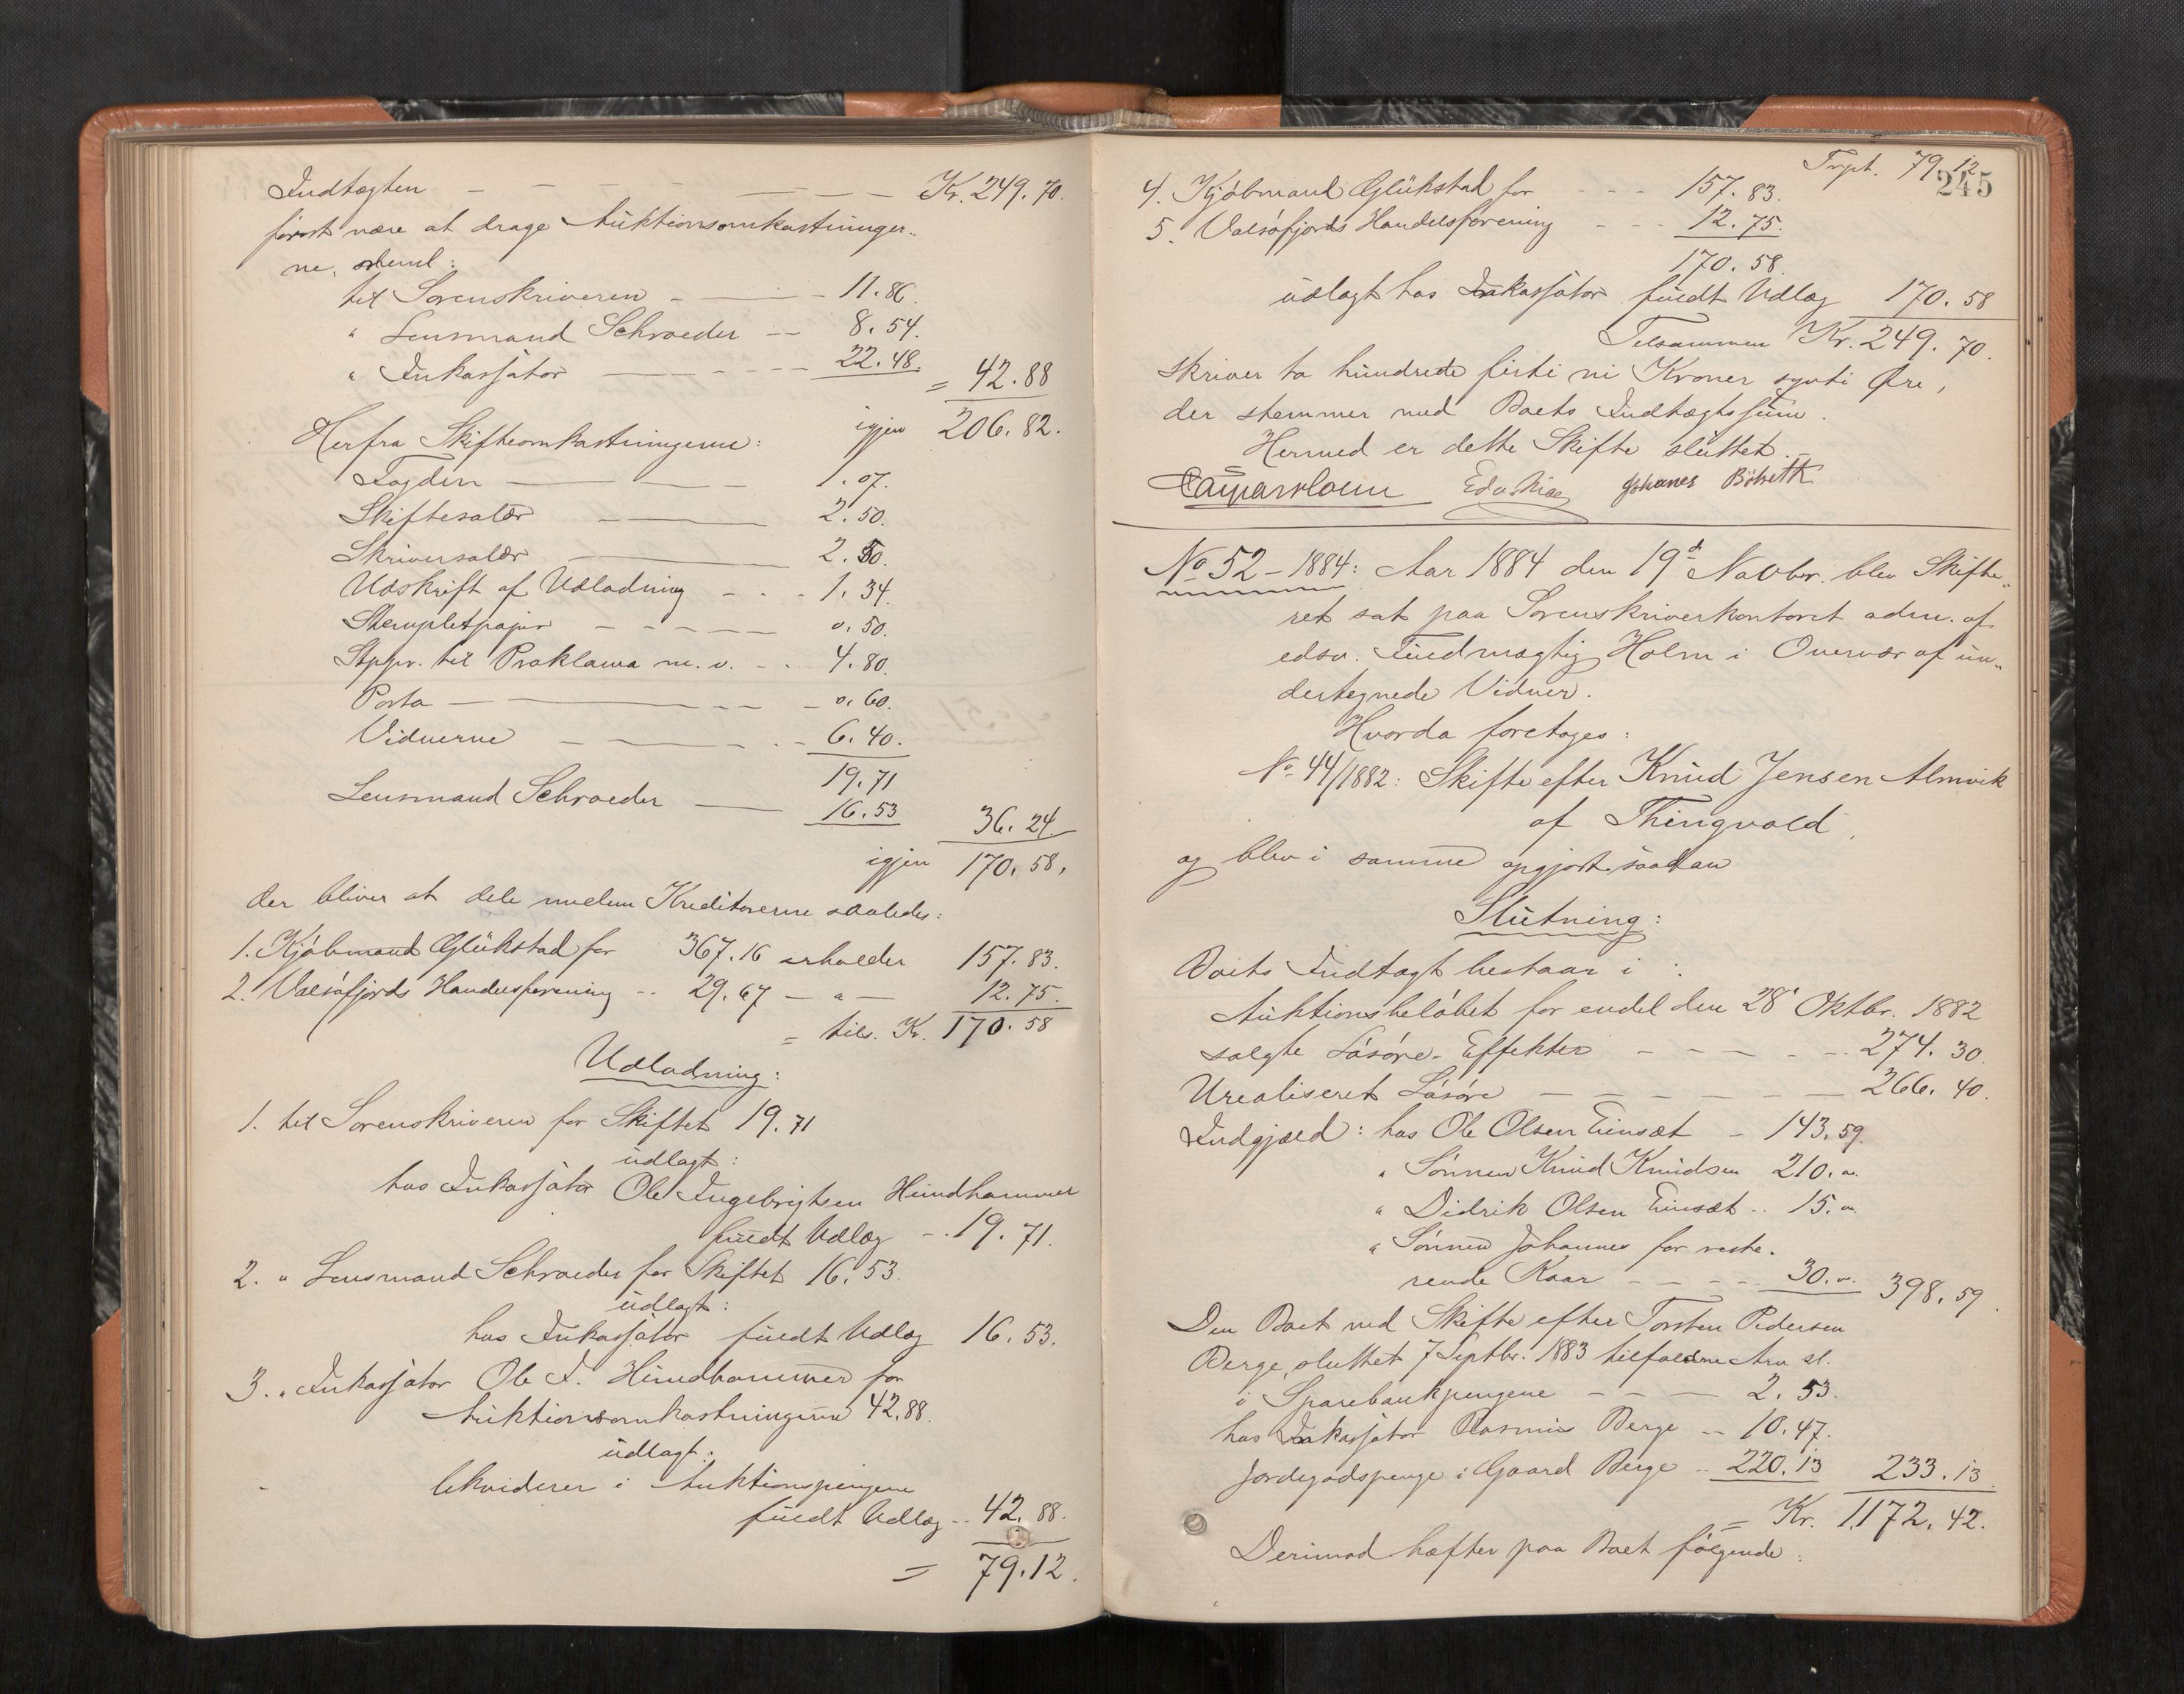 Indtægten — — — — — Kr. 249.70.
først være at drage Auktionsomkostninger-
ne, nemlig:
til Sorenskriveren — — 11.86.
" Lensmand Schroeder — 8.54.
" Inkassator — — 22.48. = 42.88
igjen 206.82.
Herfra Skifteomkostningerne:
Fogden — — 1.07.
Skiftesalær — — 2.50.
Skriversalær — 2.50.
Udskrift af Udlodning - - - 1.34.
Stempletpapir — — — 0.50.
Stppr. til Proklama m.v. - - 4.80.
Porto — — — 0.60.
Vidnerne — — — 6.40.
19.71
Lensmand Schroeder — 16.53 36.24
igjen 170.58,
der bliver at dele mellem Kreditorerne saaledes:
1. Kjøbmand Glükstad for 367.16 erholder 157.83.
2. Valsøfjords Handelsforening - - 29.67 — " — 12.75.
= tils. Kr. 170.58
Udlodning:
1. til Sorenskriveren for Skiftet 19.71
udlagt:
hos Inkassator Ole Ingebrigtsen Hundhammer
fuldt Udlæg - - 19.71.
2. " Lensmand Schroeder for Skiftet 16.53.
udlagt:
hos Inkassator fuldt Udlæg 16.53.
3. " Inkassator Ole I. Hundhammer for
Auktionsomkostningerne 42.88.
udlagt:
likviderer i Auktionspengene
fuldt Udlæg - - 42.88.
= 79.12.
Trpt. 79.12
245
4. Kjøbmand Glükstad for - - - 157.83.
5. Valsøfjords Handelsforening - - - 12.75.
170.58.
udlagt hos Inkassator fuldt Udlæg 170.58
Tilsammen Kr. 249.70.
skriver to hundrede firti ni Kroner sytti Øre,
der stemmer med Boets Indtægtssum.
Hermed er dette Skifte sluttet.
Casparholm Johanes Bölseth
No 52 - 1884: Aar 1884 den 19d Novbr. blev Skifte-
ret sat paa Sorenskriverkontoret adm. af
edsv. Fuldmægtig Holm i Overvær af un-
dertegnede Vidner.
Hvorda foretoges:
No 44/1882: Skifte efter Knud Jensen Almvik
af Thingvold,
og blev i samme opgjort saadan
Slutning:
Boets Indtægt bestaar i:
Auktionsbeløbet for endel den 28' Oktbr. 1882
solgte Løsøre-Effekter — — — - - 274.30.
Urealiseret Løsøre — — — — — 266.40.
Indgjæld: hos Ole Olsen Einsæt - 143.59.
" Sønnen Knud Knudsen 210."
" Didrik Olsen Einsæt - - 15."
" Sønnen Johannes for reste-
rende Kaar — — — 30." 398.59.
Den Boet ved Skifte efter Torsten Pedersen
Berge, sluttet 7 Septbr. 1883 tilfaldne Arv sl.
i Sparebankpengene — — — 2.53.
hos Inkassator Rasmus Berge - - 10.47.
Jordegodspenge i Gaard Berge - - 220.13 233.13
= Kr. 1,172.42.
Derimod hæfter paa Boet følgende: